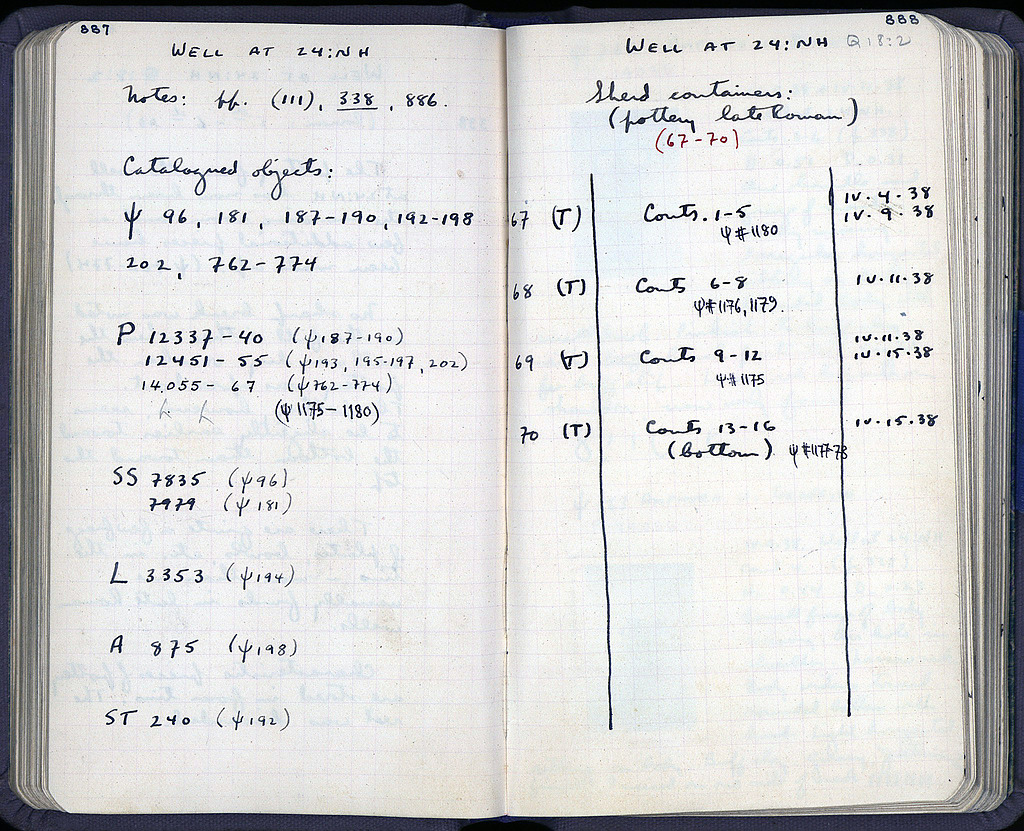 887
WELL AT 24:NH
Notes: pp. (111), 338, 886.
Catalogued objects:
Ψ 96, 181, 187-190, 192-198
202, 762-774
P 12337-40 (Ψ187-190)
12451-55 (Ψ193, 195-197, 202)
14055-67 (Ψ762-774)
(Ψ1175-1180)
SS 7835 (Ψ96)
7979 (Ψ181)
L 3353 (Ψ194)
A 875 (Ψ198)
ST 240 (Ψ192)
888
WELL AT 24:NH Q18:2
Sherd containers:
(pottery late Roman)
(67-70)
IV.4.38
67 (T) Conts. 1-5 IV.9.38
Ψ#1180
68 (T) Conts 6-8 IV.11.38
Ψ#1176, 1179.
IV.11.38
69 (T) Conts 9-12 IV.15.38
Ψ#1175
70 (T) Conts 13-16 IV.15.38
(bottom) Ψ#1177-78